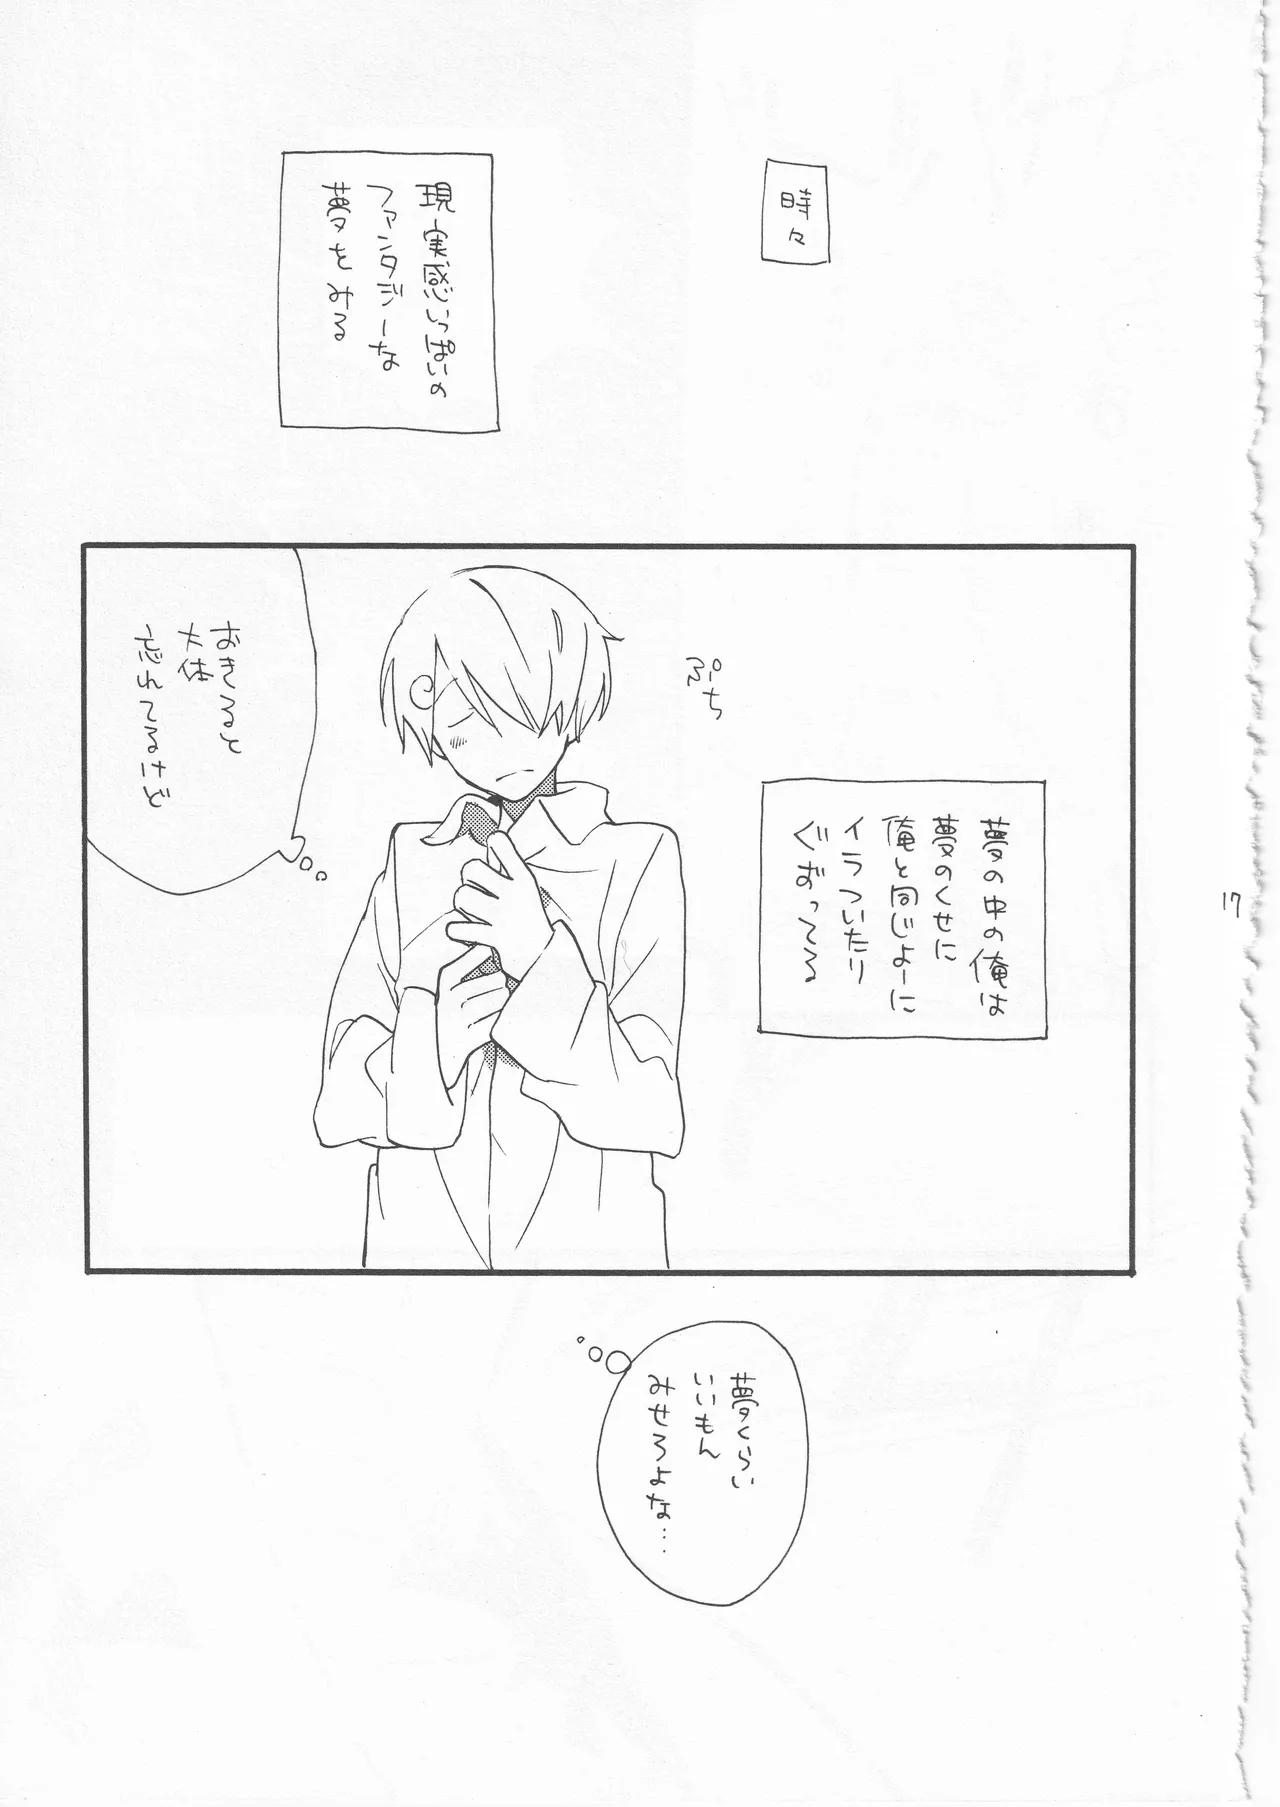 時々
現実感いっぱいの
ファンタジーな
夢をみる
ぷち
夢の中の俺は
夢のくせに
俺と同じよーに
イラついたり
ぐずってる
おきると
大体
忘れてるけど
夢くらい
いいもん
みせろよな…
17